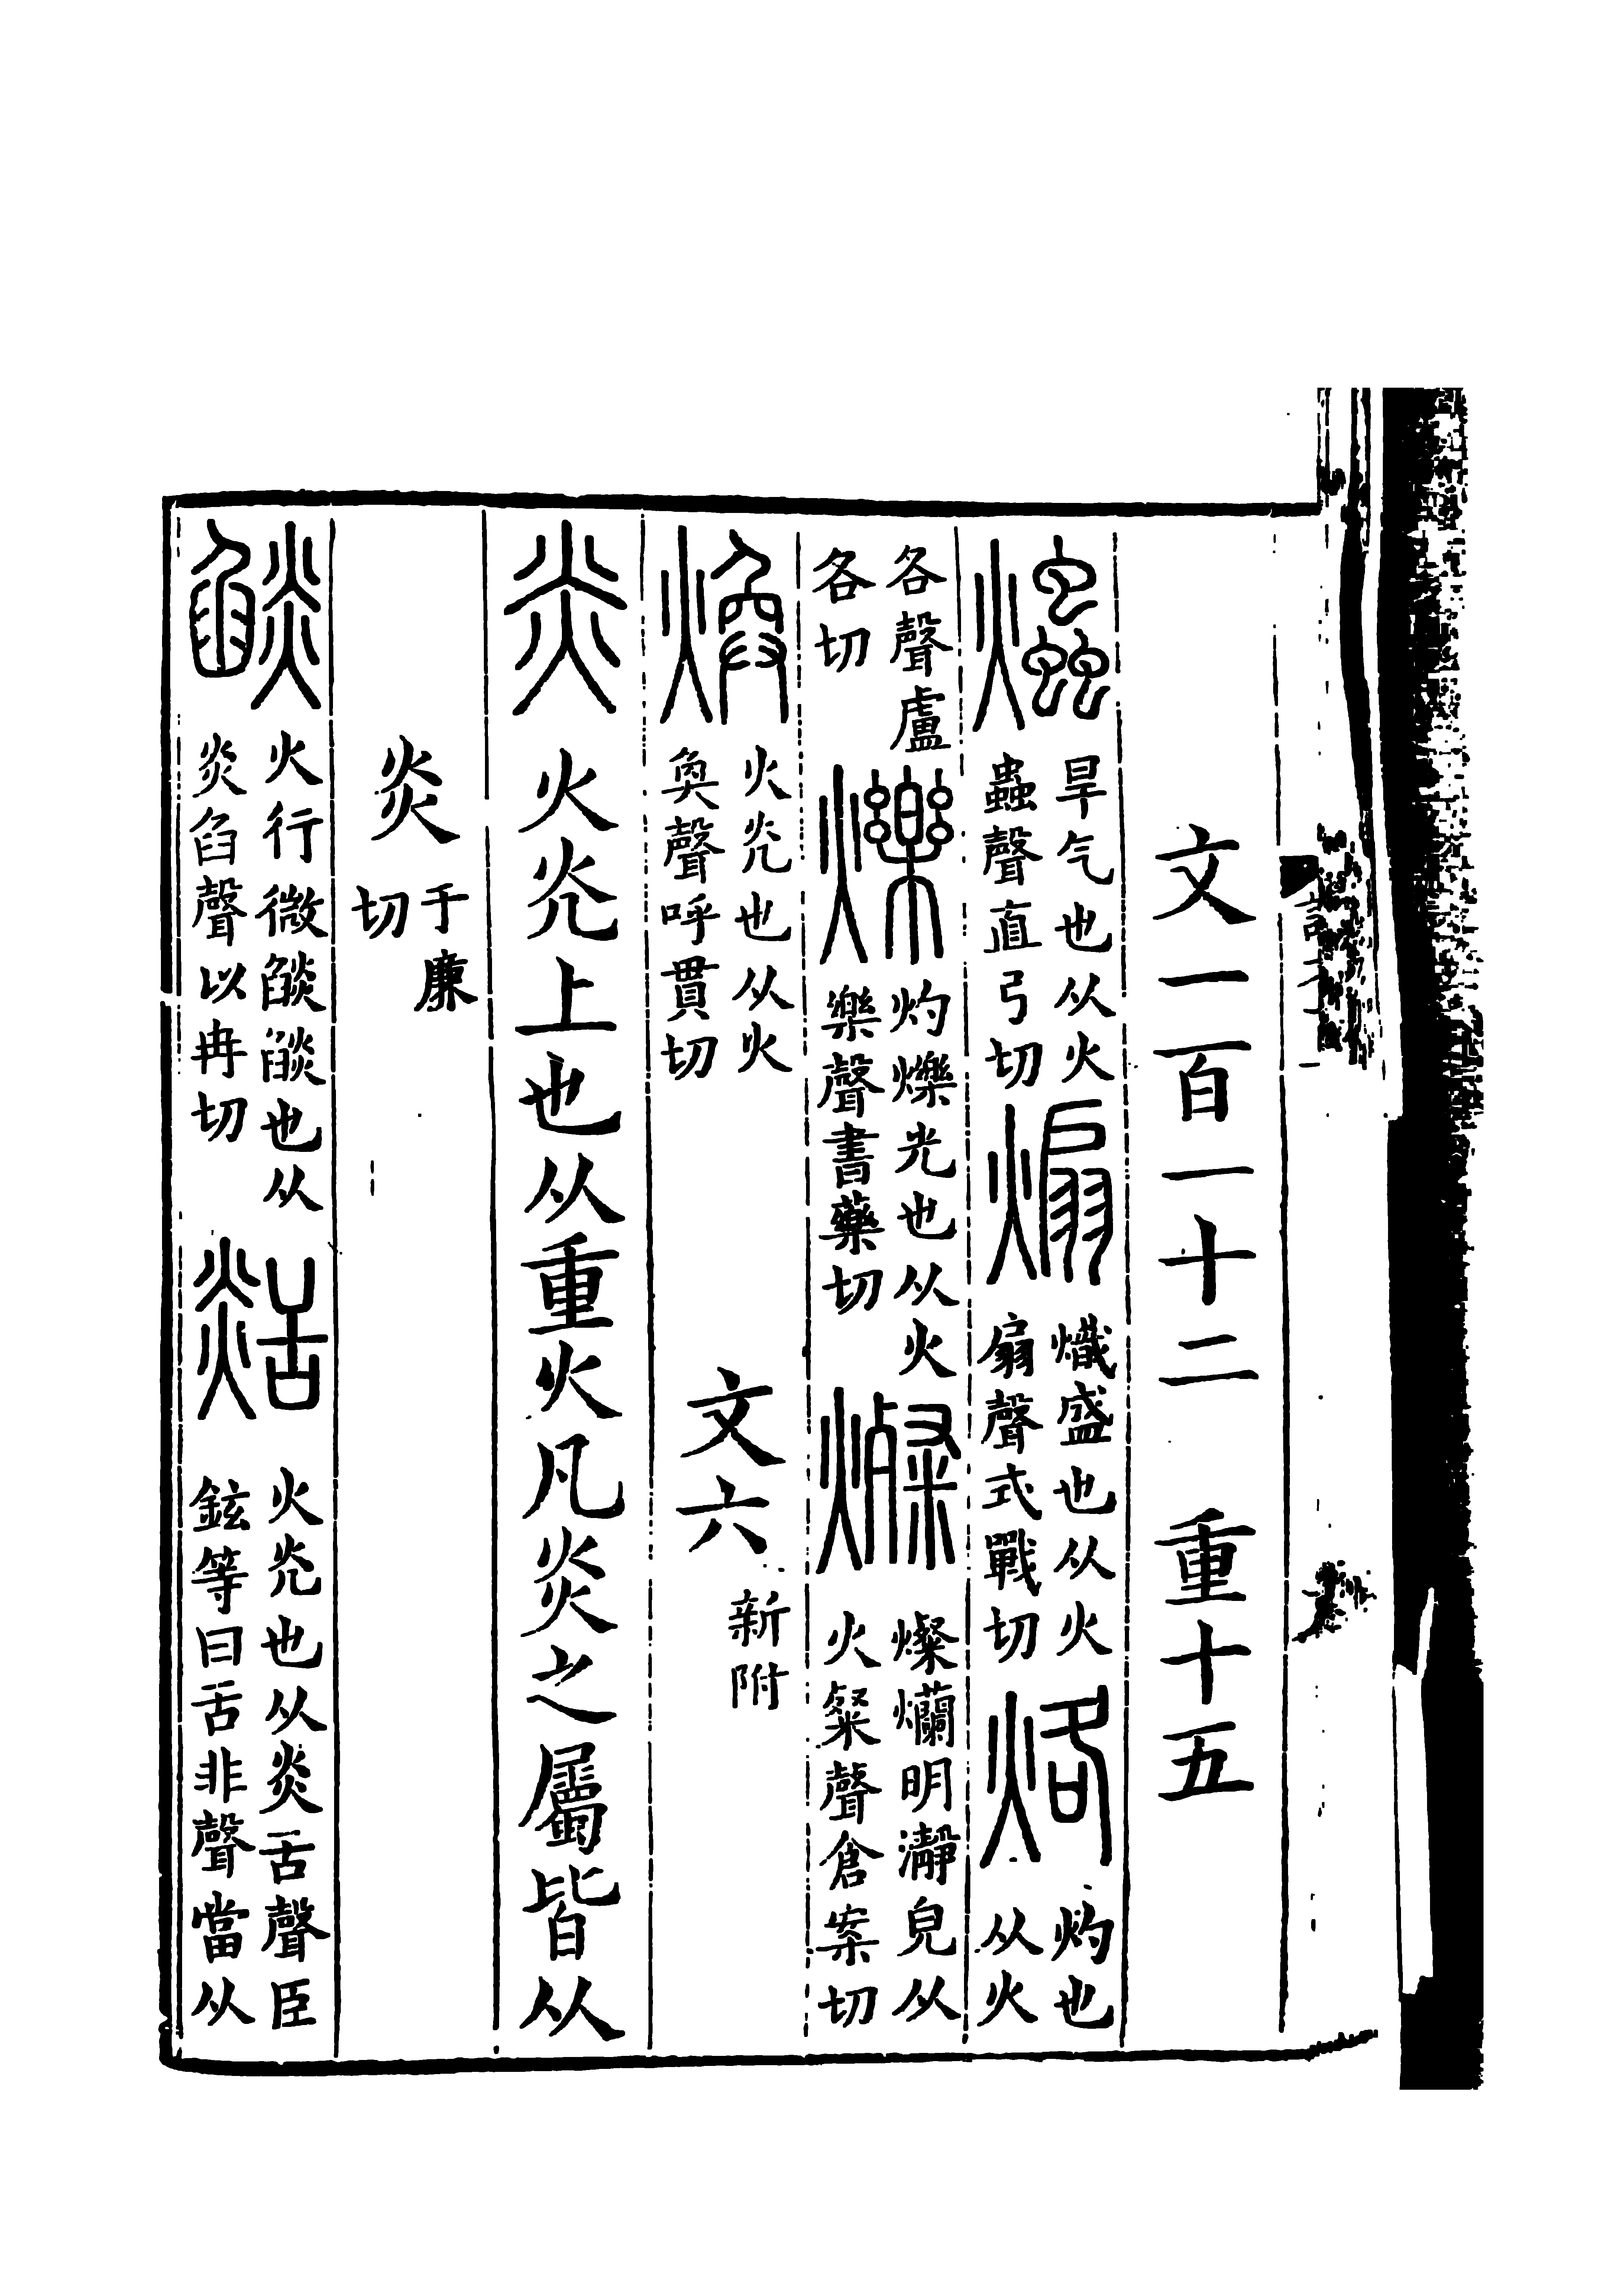 文一百一十二　重十五
爞旱气也从火蟲聲直弓切煽熾盛也从火扇聲式戰切烙灼也从火
各聲盧各切爍灼爍光也从火樂聲書藥切燦燦爛明瀞皃从火粲聲倉案切
煥火灮也从火奐聲呼貫切　文六新附
炎火灮上也从重火凡炎之屬皆从
炎于廉切
燄火行微燄燄也从炎臽聲以冉切㷿火灮也从炎舌聲臣鉉等曰舌非聲當从